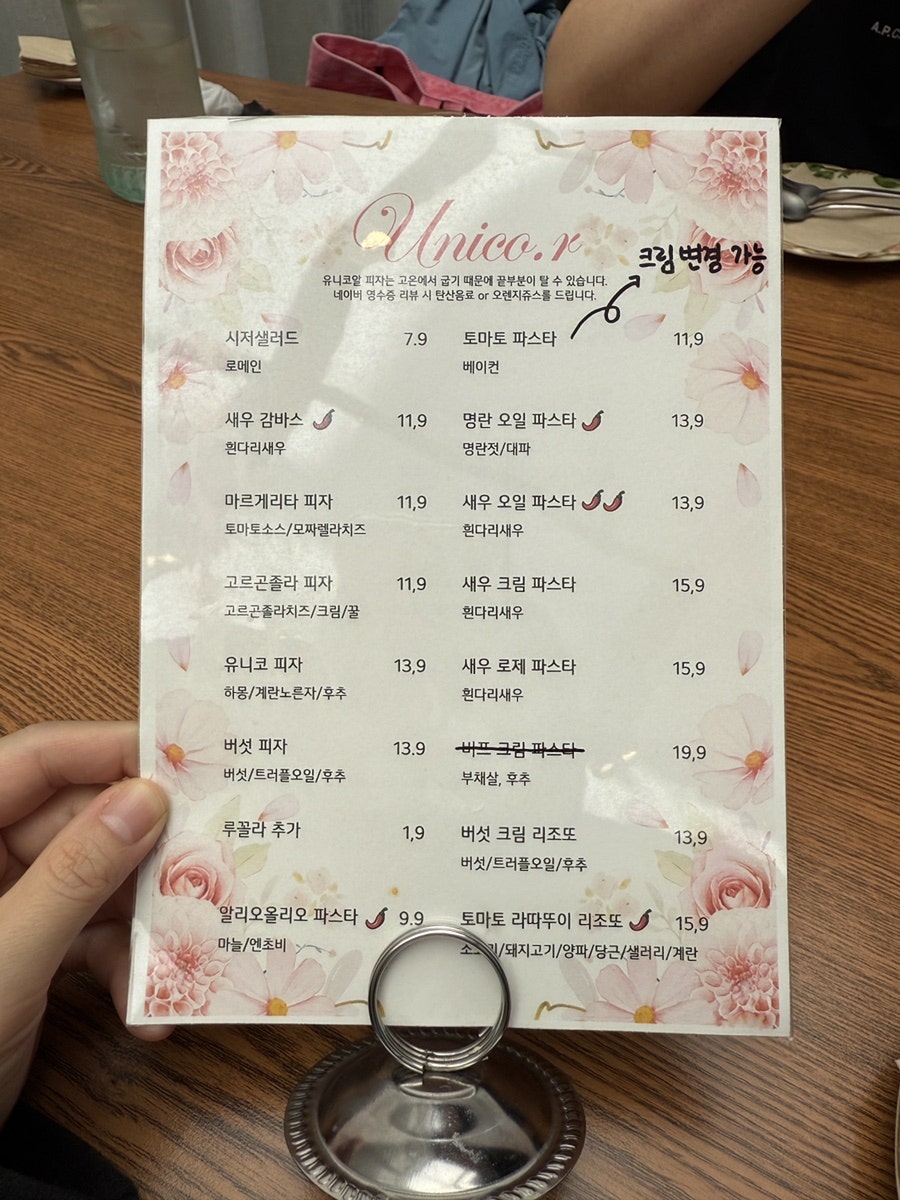 A.P.C
Unico.r
크림 변경 가능
유니코알 피자는 고온에서 굽기 때문에 끝부분이 탈 수 있습니다.
네이버 영수증 리뷰 시 탄산음료 or 오렌지쥬스를 드립니다.
시저샐러드 7.9
로메인
새우 감바스 11,9
흰다리새우
마르게리타 피자 11,9
토마토소스/모짜렐라치즈
고르곤졸라 피자 11,9
고르곤졸라치즈/크림/꿀
유니코 피자 13,9
하몽/계란노른자/후추
버섯 피자 13.9
버섯/트러플오일/후추
루꼴라 추가 1,9
알리오올리오 파스타 9.9
마늘/엔초비
토마토 파스타 11,9
베이컨
명란 오일 파스타 13,9
명란젓/대파
새우 오일 파스타 13,9
흰다리새우
새우 크림 파스타 15,9
흰다리새우
새우 로제 파스타 15,9
흰다리새우
비프 크림 파스타 19,9
부채살, 후추
버섯 크림 리조또 13,9
버섯/트러플오일/후추
토마토 라따뚜이 리조또 15,9
/돼지고기/양파/당근/샐러리/계란